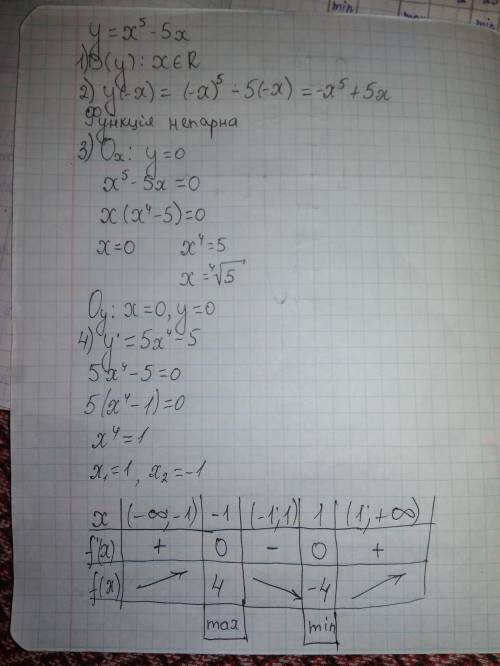 min
y = x⁵ - 5x
1) D(y): x∈R
2) y(-x) = (-x)⁵ - 5(-x) = -x⁵ + 5x
Функція непарна
3) Ox: y=0
x⁵ - 5x = 0
x(x⁴-5)=0
x=0 x⁴=5
x=⁴√5
Oy: x=0, y=0
4) y' = 5x⁴-5
5x⁴-5=0
5(x⁴-1)=0
x⁴=1
x₁=1, x₂=-1
x (-∞;-1) -1 (-1;1) 1 (1;+∞)
f'(x) + 0 - 0 +
f(x) ↗ 4 ↘ -4 ↗
max min